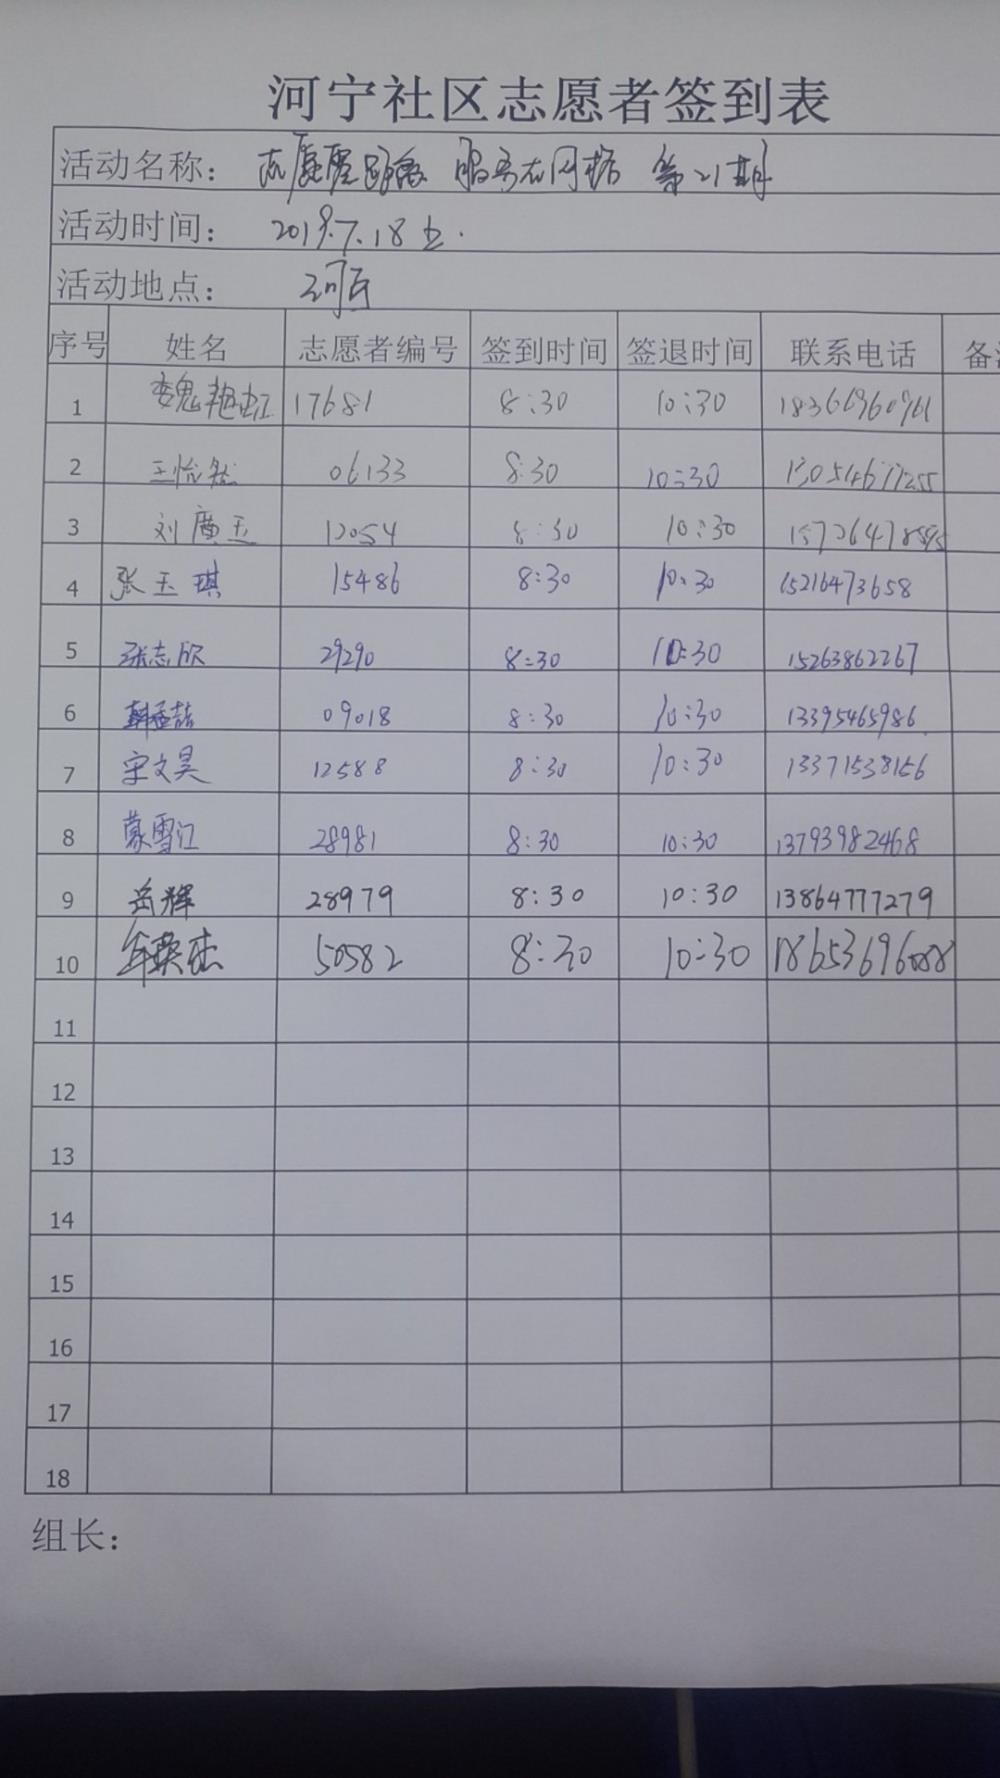 河宁社区志愿者签到表
活动名称： 志愿 服务在网格 第21期
活动时间： 2019.7.18
活动地点： 河宁
序号 姓名 志愿者编号 签到时间 签退时间 联系电话
1 魏艳虹 17681 8:30 10:30
2 王怡然 06133 8:30 10:30
3 刘广玉 12054 8:30 10:30
4 张玉琪 15486 8:30 10:30 15216473658
5 张志欣 29290 8:30 10:30 15263862267
6 09018 8:30 10:30 13395465986
7 宋文昊 12588 8:30 10:30 13371538156
8 蒙雪江 28981 8:30 10:30 13793982468
9 岳辉 28979 8:30 10:30 13864777279
10 50582 8:30 10:30
11
12
13
14
15
16
17
18
组长：